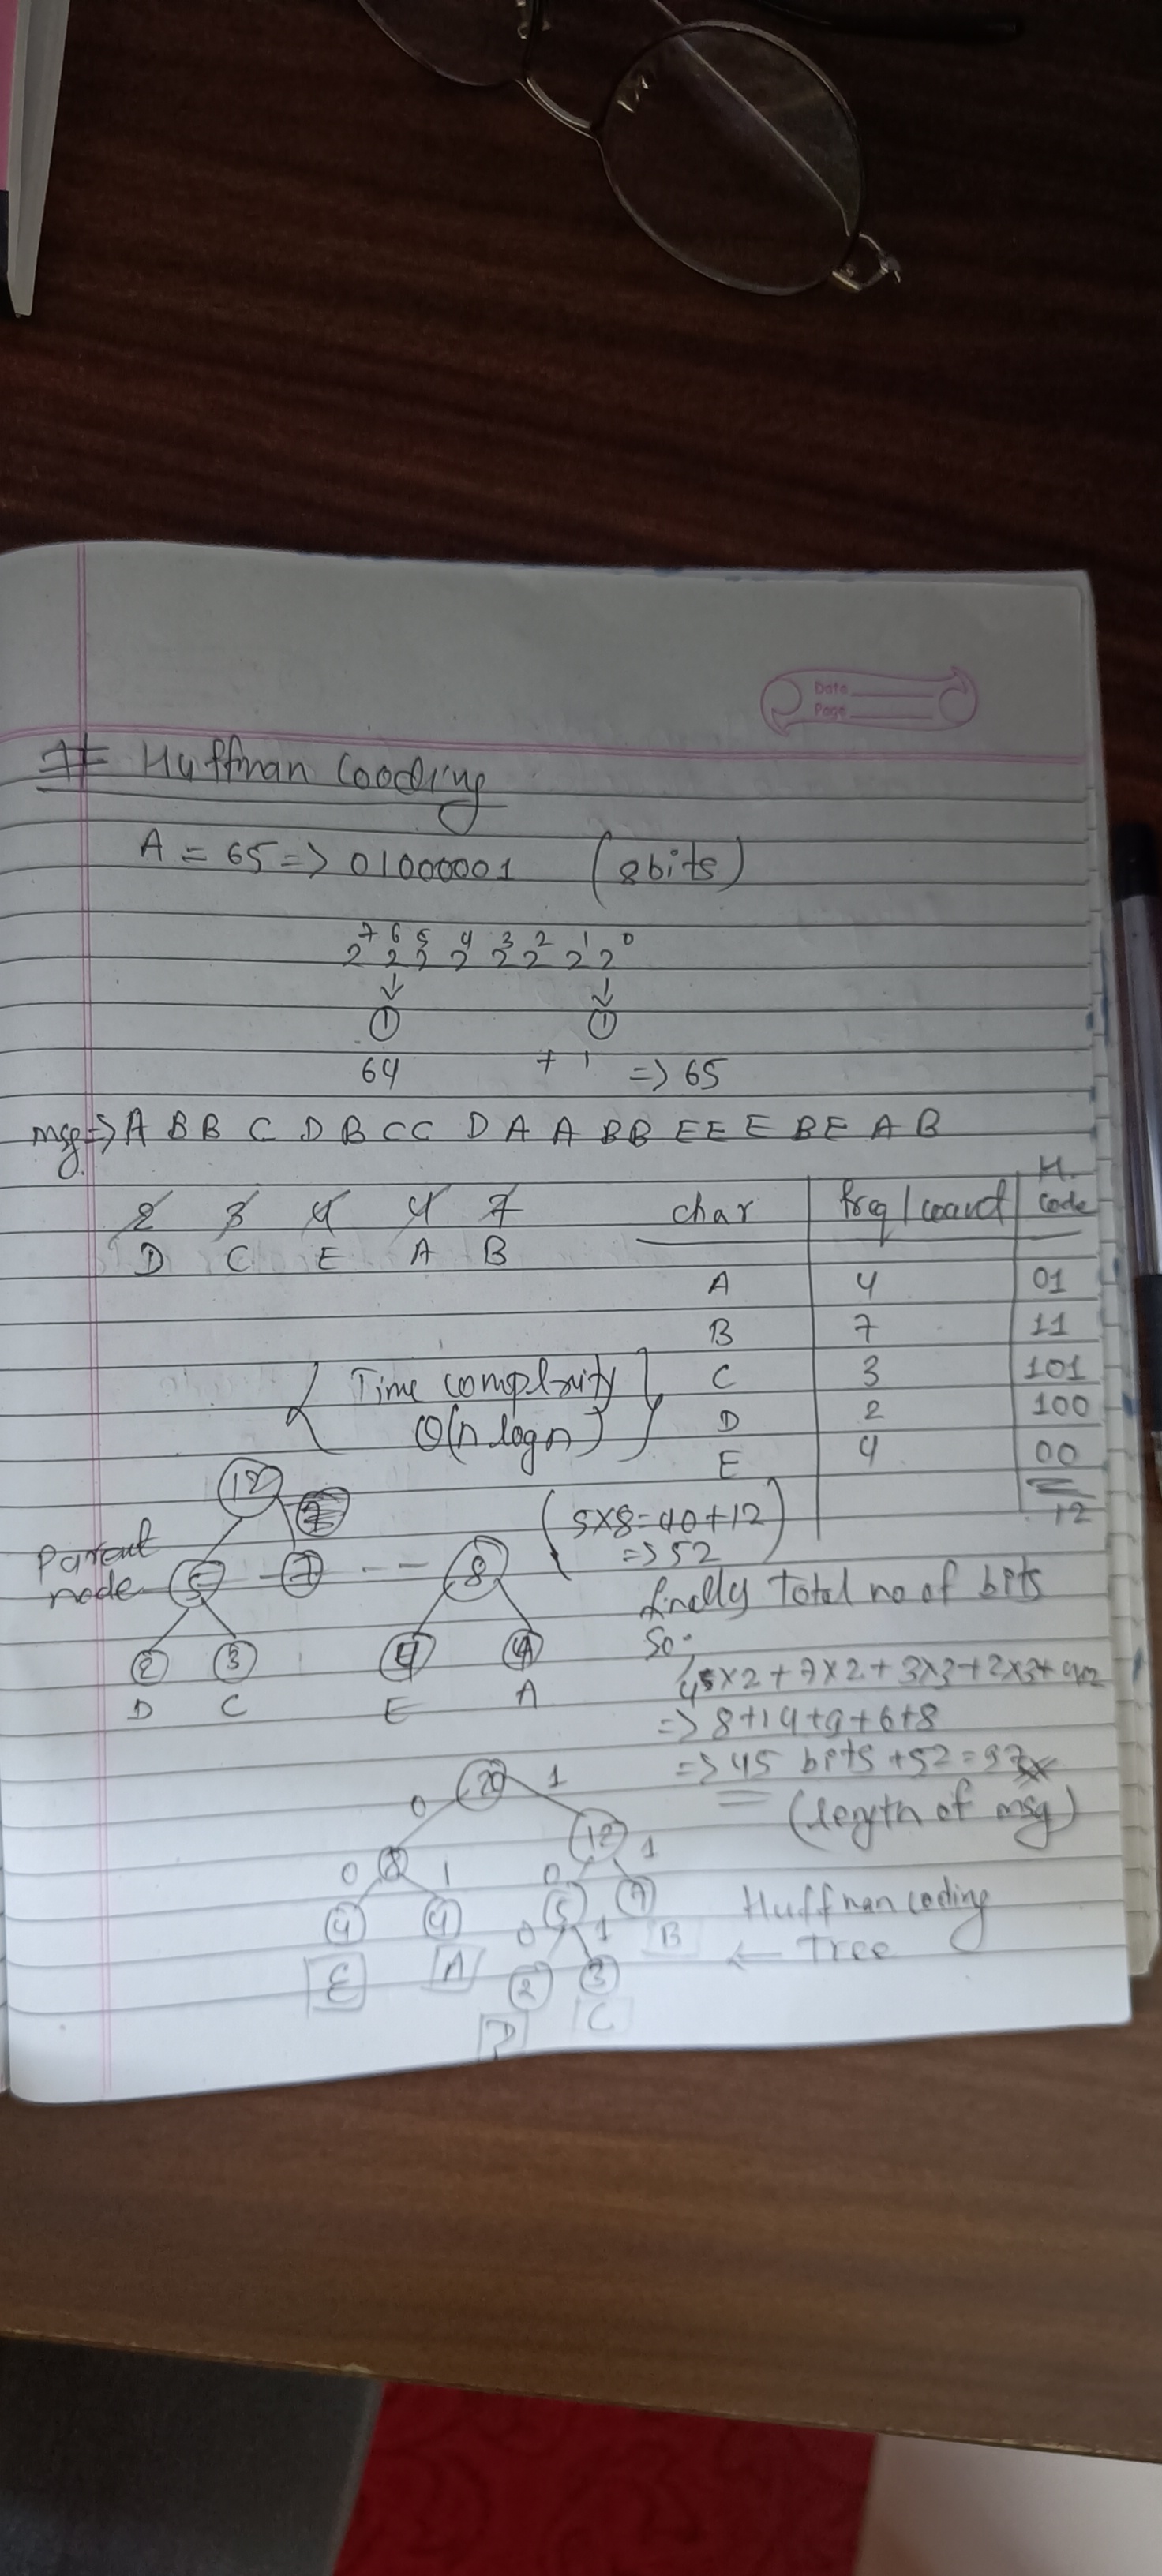 Date
Page
# Huffman Coodling
A = 65 => 01000001 (8bits)
7 6 5 4 3 2 1 0
2 2 2 2 2 2 2 2
↓ ↓
1 1
64 + 1 => 65
msg => A BB C D B CC D A A BB EE E BE A B
2 3 4 4 7
D C E A B
char frq/count H. Code
A 4 01
B 7 11
C 3 101
D 2 100
E 4 00
12
Time complexity
O(n logn)
12
Parent node 5 - 7 - - 8
2 3 4 4
D C E A
(5x8=40+12
=> 52)
finally Total no of bits
so:
4x2 + 7x2 + 3x3 + 2x3 + 4x2
=> 8+14+9+6+8
=> 45 bits +52 = 97
(length of msg)
20
0 1
8 12
0 1 0 1
4 4 5 7
E A 0 1 B
2 3
D C
Huffman coding
← Tree